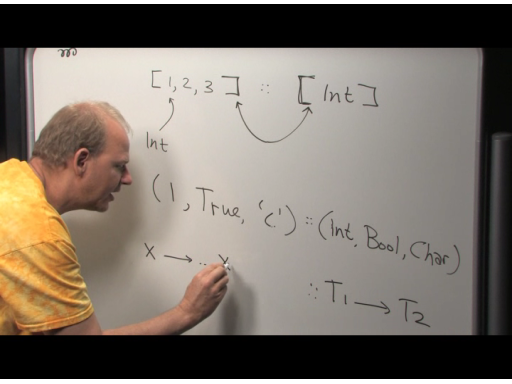 [1,2,3] :: [Int]
Int
(1, True, 'c') :: (Int, Bool, Char)
X → .. X
:: T1 → T2